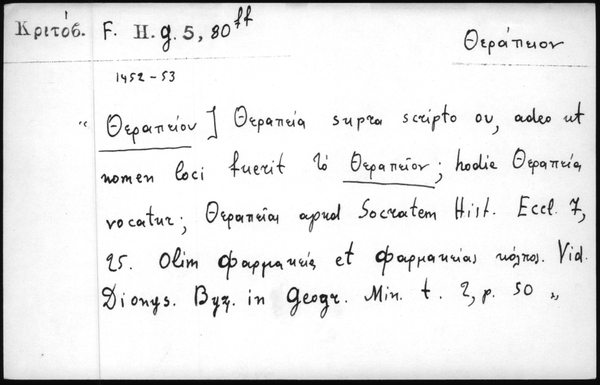 Κριτόβ. F. H. g. 5, 80 ff
Θεράπειον
1452-53
" Θεραπείου ] Θεραπεία supra scripto ου, adeo ut
nomen loci fuerit τὸ Θεραπεῖον; hodie Θεραπεία
vocatur; Θεραπεῖαι apud Socratem Hist. Eccl. 7,
25. Olim Φαρμακείας et Φαρμακείας κόλπος. Vid.
Dionys. Byz. in Geogr. Min. t. 2, p. 50 "